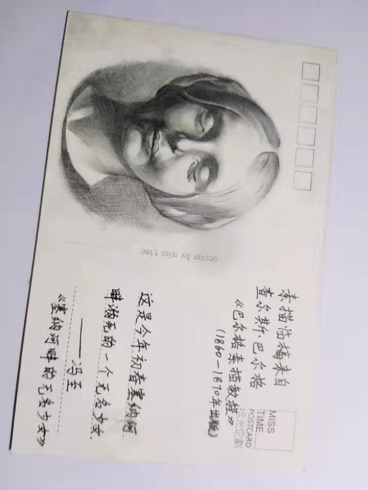 素描临稿来自
查尔斯·巴尔格
《巴尔格素描教程》
(1860-1870年出版)
MISS
TIME
POSTCARD
design by miss time
这是今年初春塞纳河
畔溺死的一个无名少女
——冯至
《塞纳河畔的无名少女》